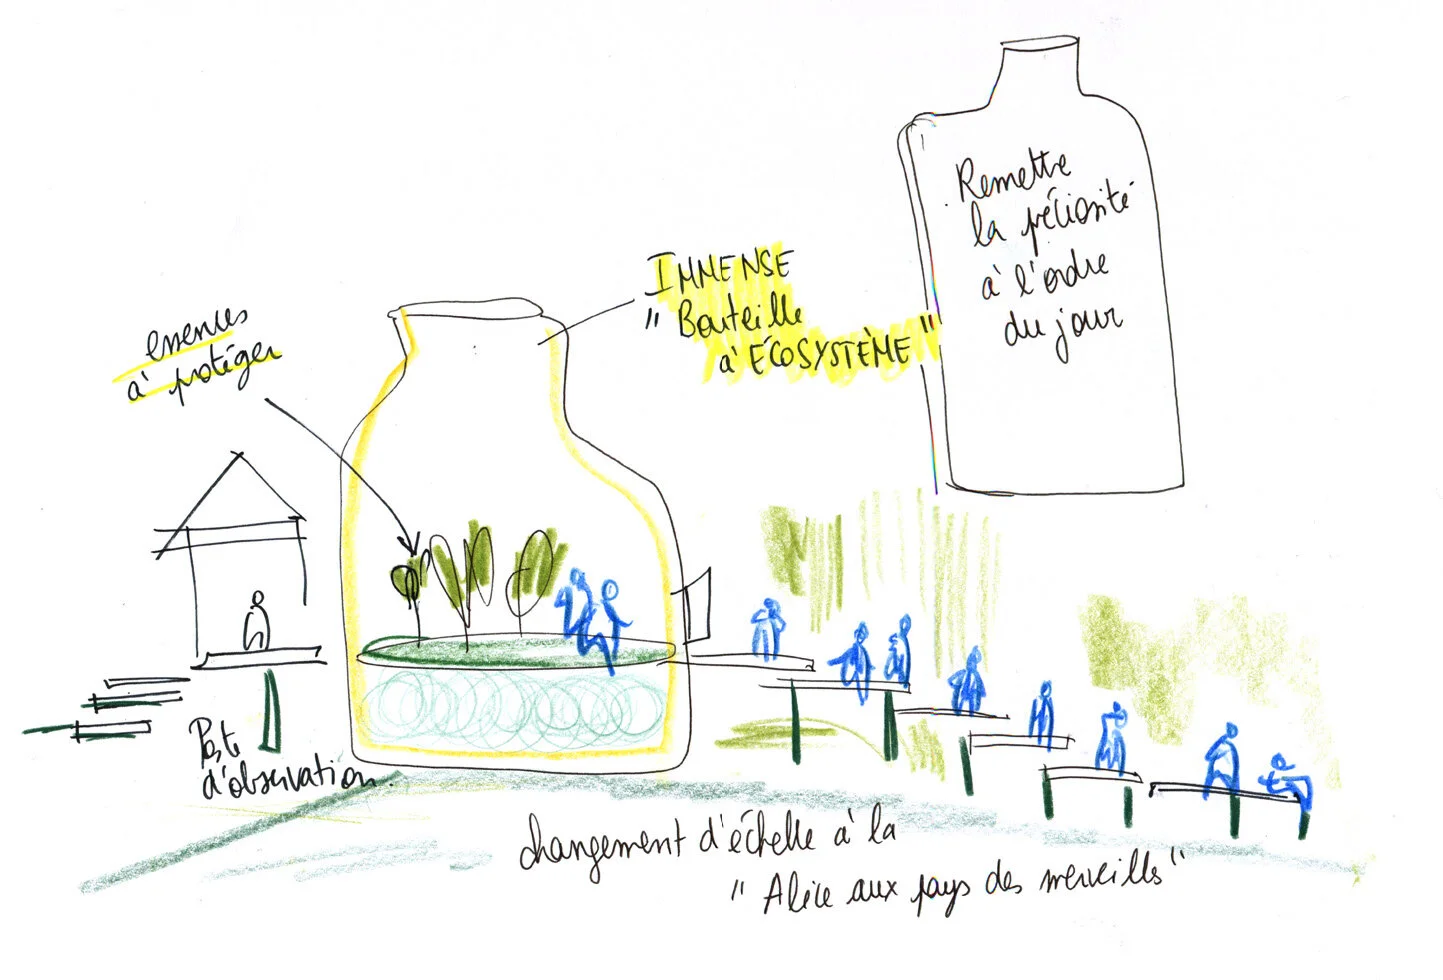 Remettre
la préciosité
à l'ordre
du jour
IMMENSE
" Bouteille
à ÉCOSYSTÈME "
essences
à protéger
Poste
d'observation.
changement d'échelle à la
" Alice aux pays des merveilles "